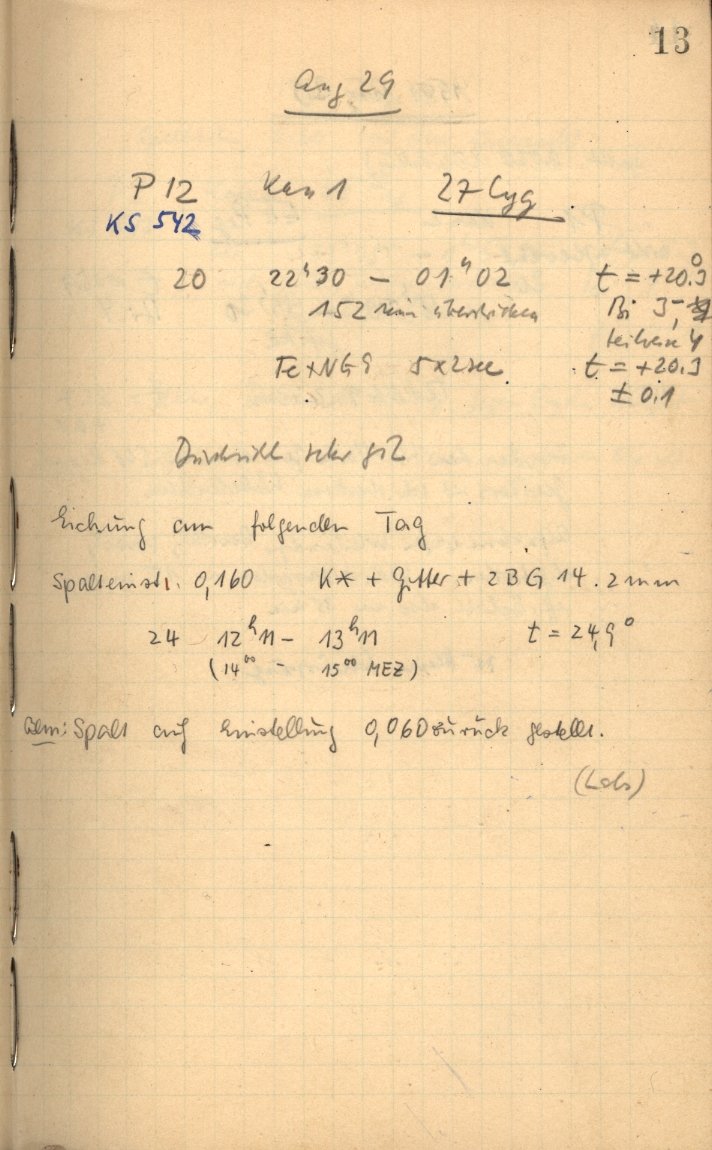 13
Aug. 29
P 12 Kam 1 27 Cyg
KS 542
20 22ʰ30 – 01ʰ02 t = +20.3°
152 min überstrichen Bi 3-,
teilweise 4
Fe+NG 5×2sec. t = +20.3
± 0.1
Durchsicht sehr gut
Eichung am folgenden Tag
Spalteinst. 0,160 K* + Gitter + 2 BG 14 . 2mm
24 12ʰ11 – 13ʰ11 t = 24,9°
(14⁰⁰ – 15⁰⁰ MEZ)
Bem: Spalt auf Einstellung 0,060 zurück gestellt.